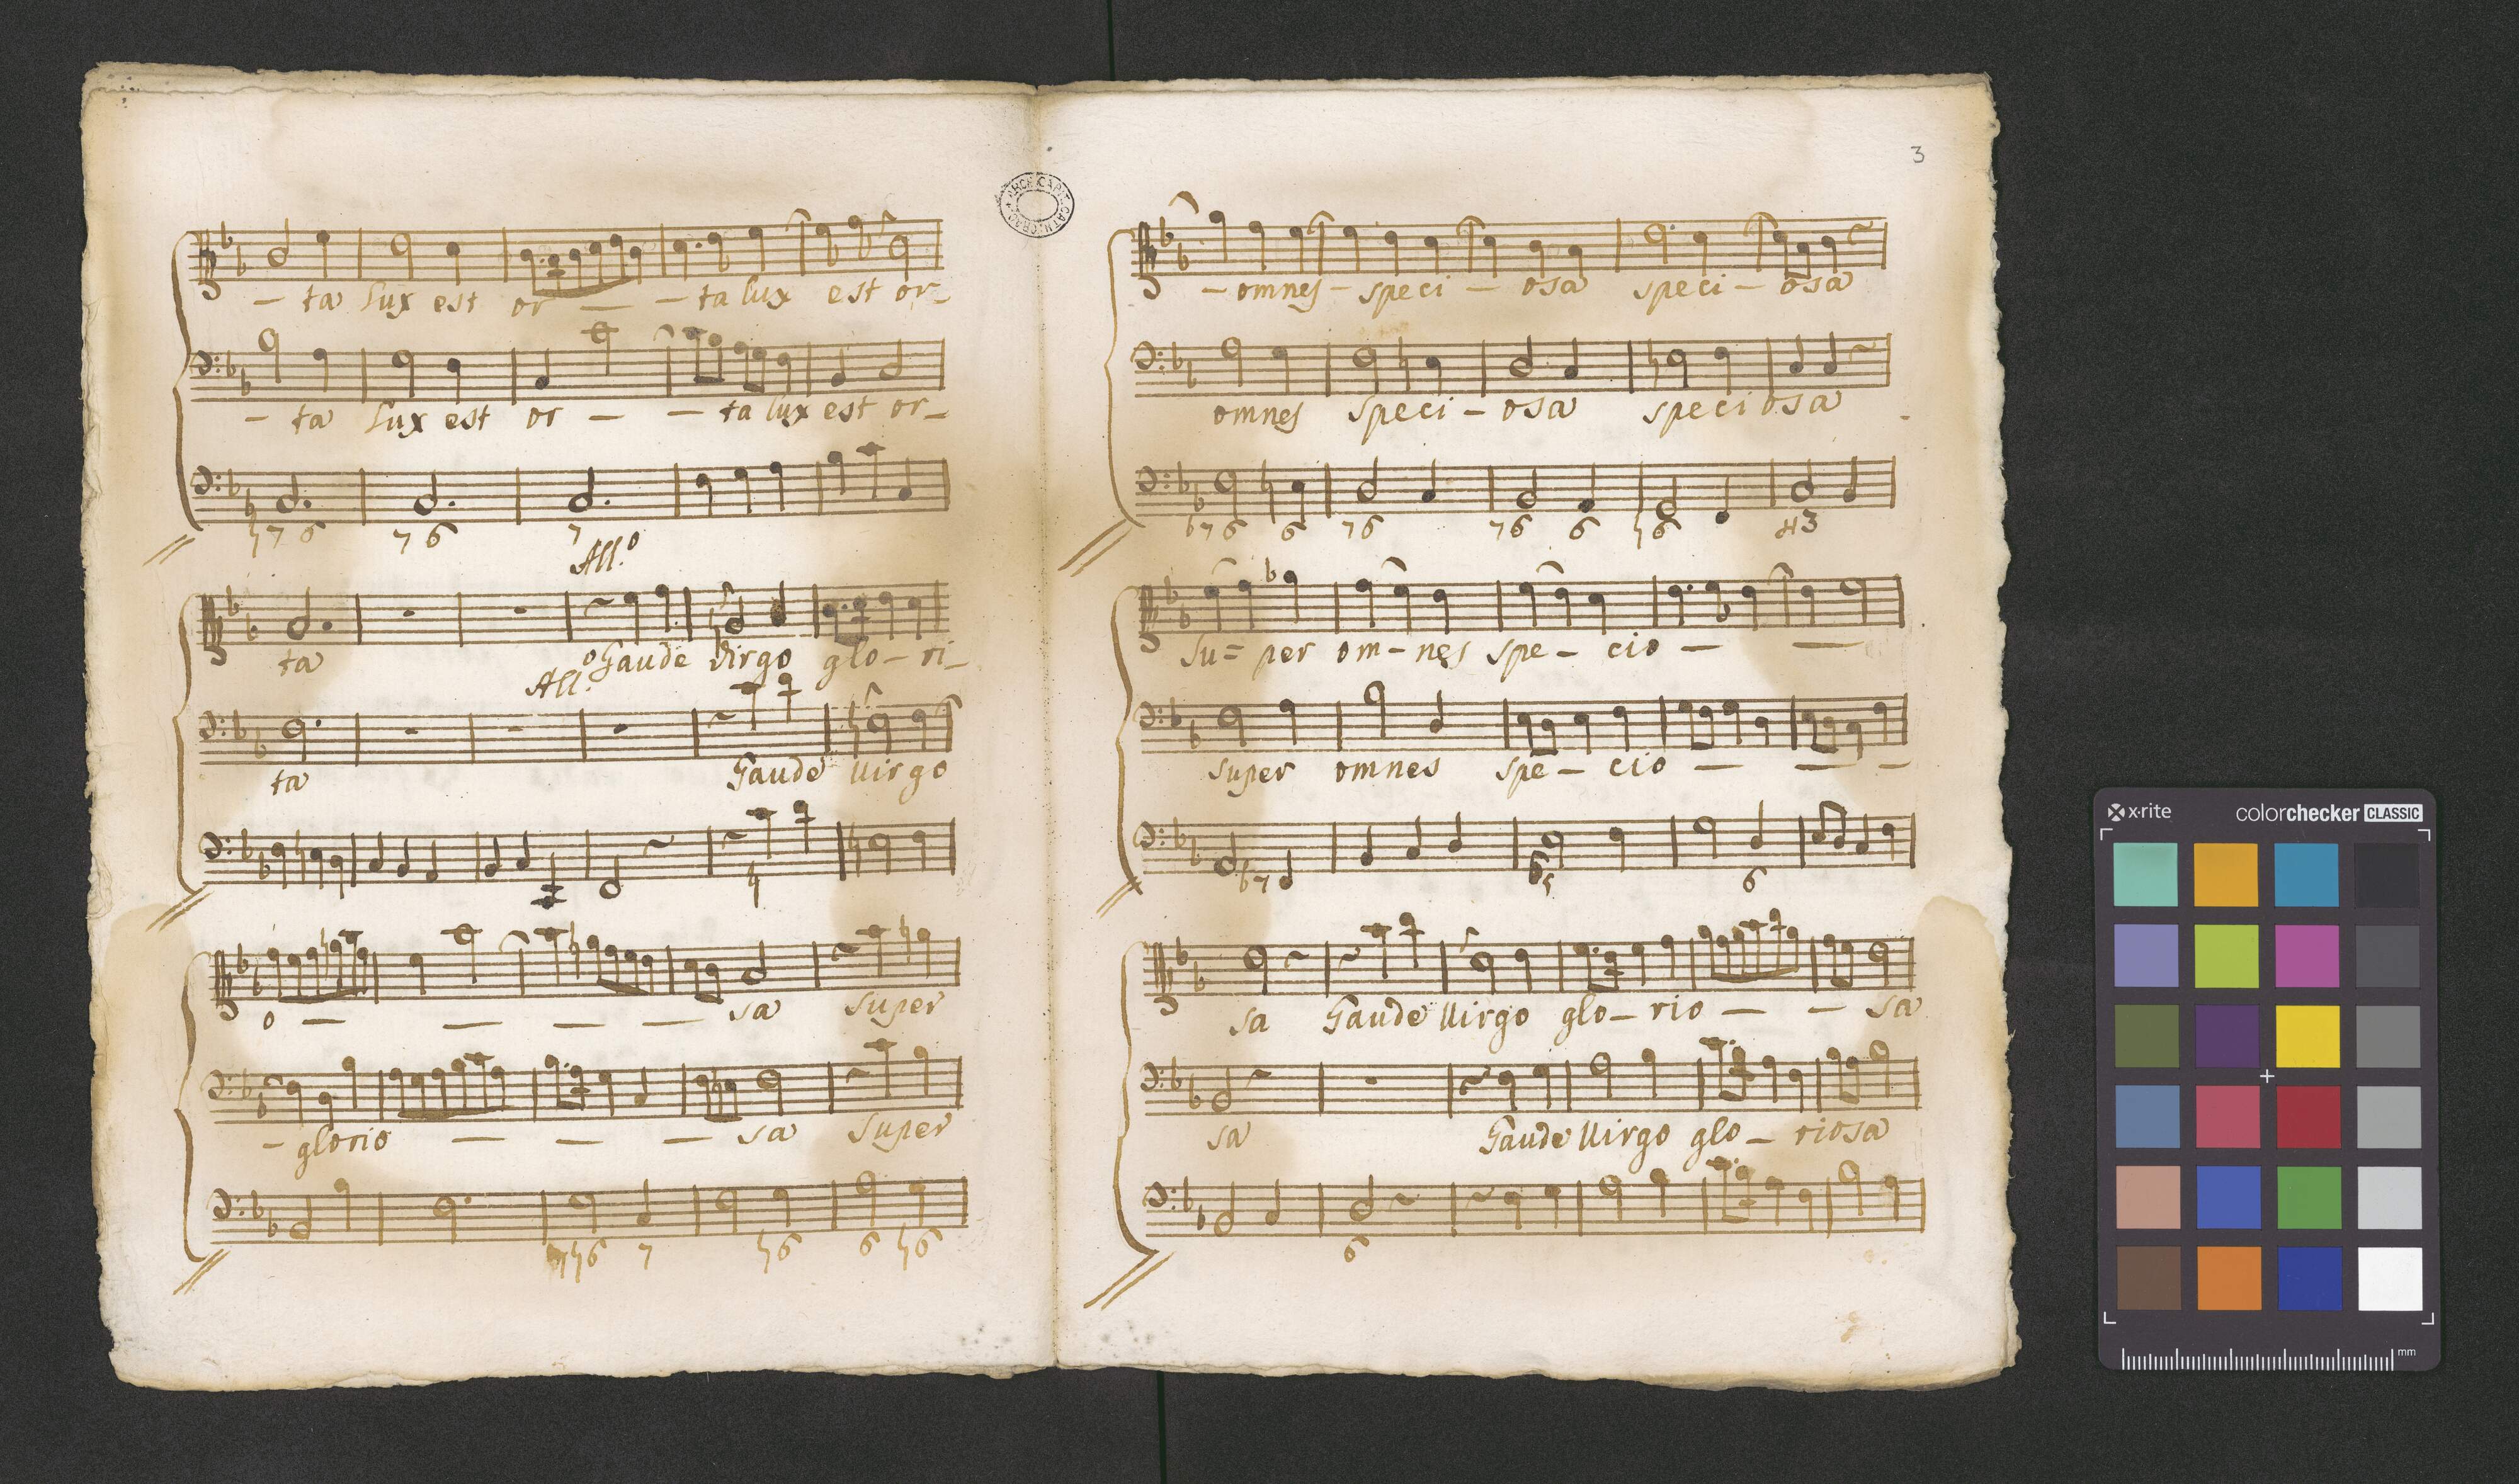 – ta lux est or – – ta lux est or–
– ta lux est or – – ta lux est or–
♮ 7 6 7 6 7
All.º
ta Gaude Virgo glo – ri–
All.º
ta Gaude Virgo
4
o – – – – sa super
– glorio – – – sa super
♮6 7 ♮6 6 ♮6
3
– omnes – speci – osa speci – osa
omnes speci – osa speciosa
♭7 6 6 7 6 7 6 6 ♮6 43
Su= per om – nes spe – cio – –
super omnes spe – cio – – –
♭7 6 5 6
sa Gaude Virgo glo – rio – – sa
sa Gaude Virgo glo – riosa
6
x·rite colorchecker CLASSIC
mm